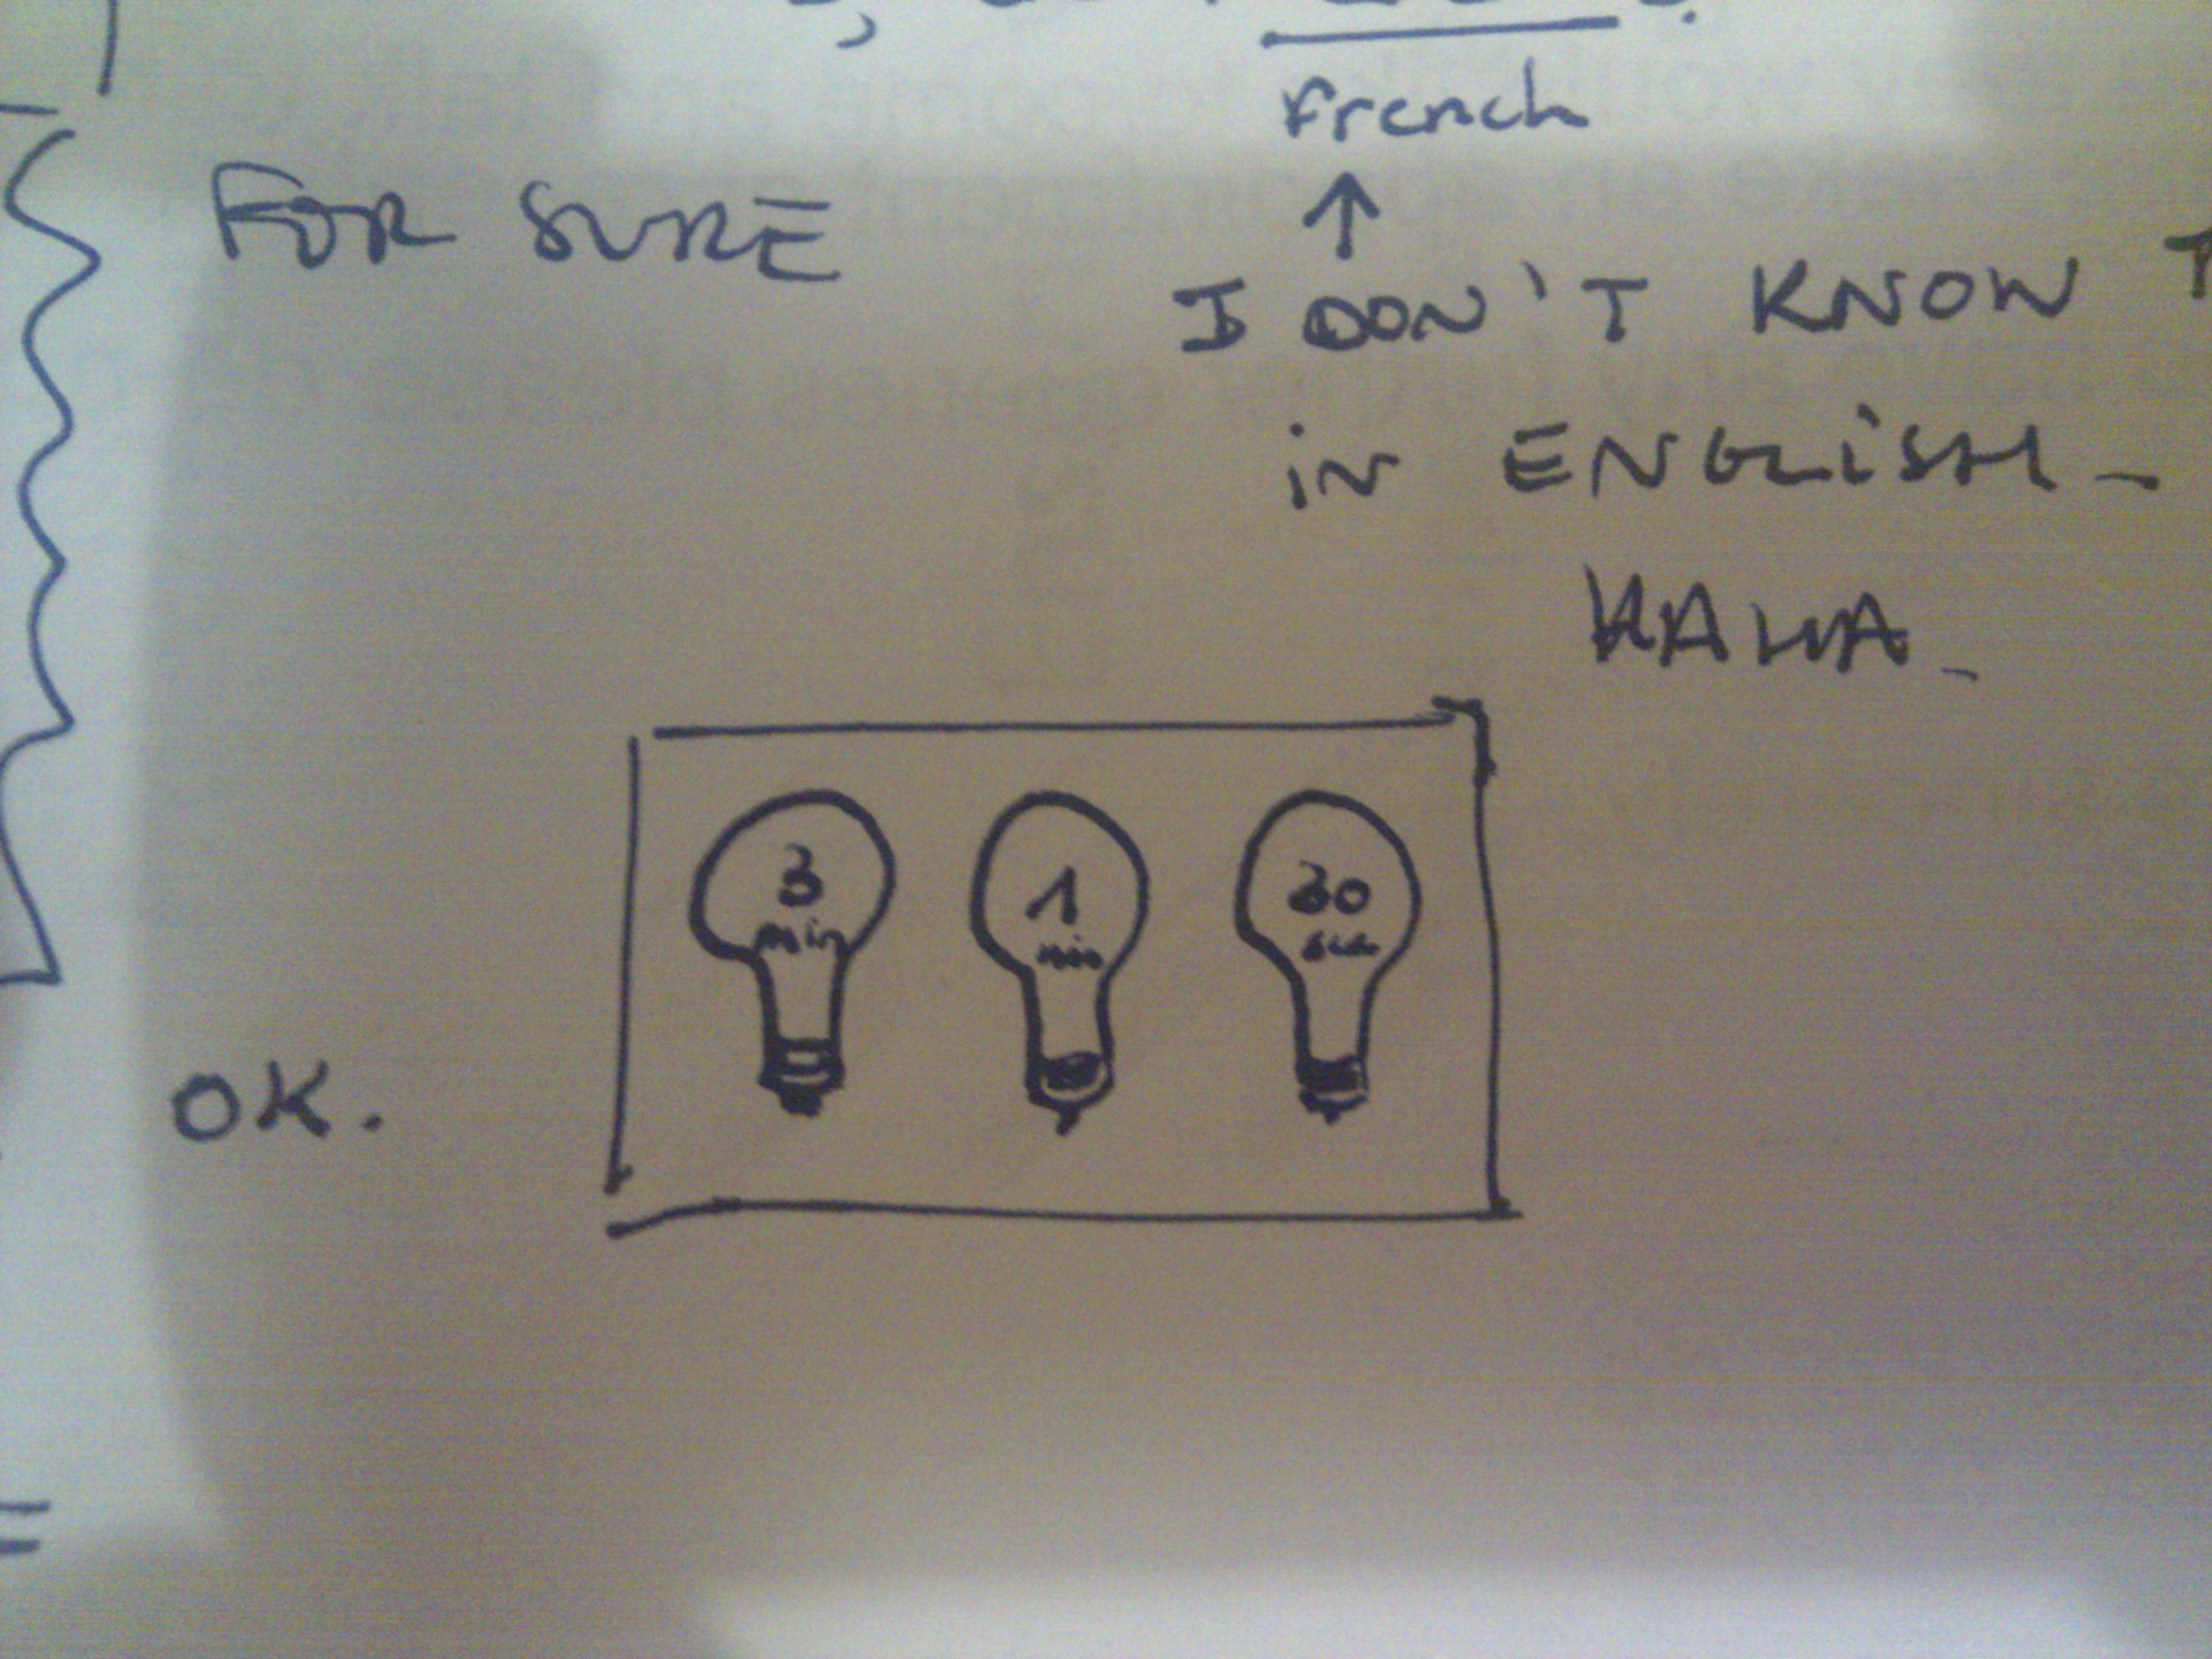 french
FOR SURE
↑
I DON'T KNOW
in ENGLISH -
HAHA -
3
min
1
min
30
sec
OK.